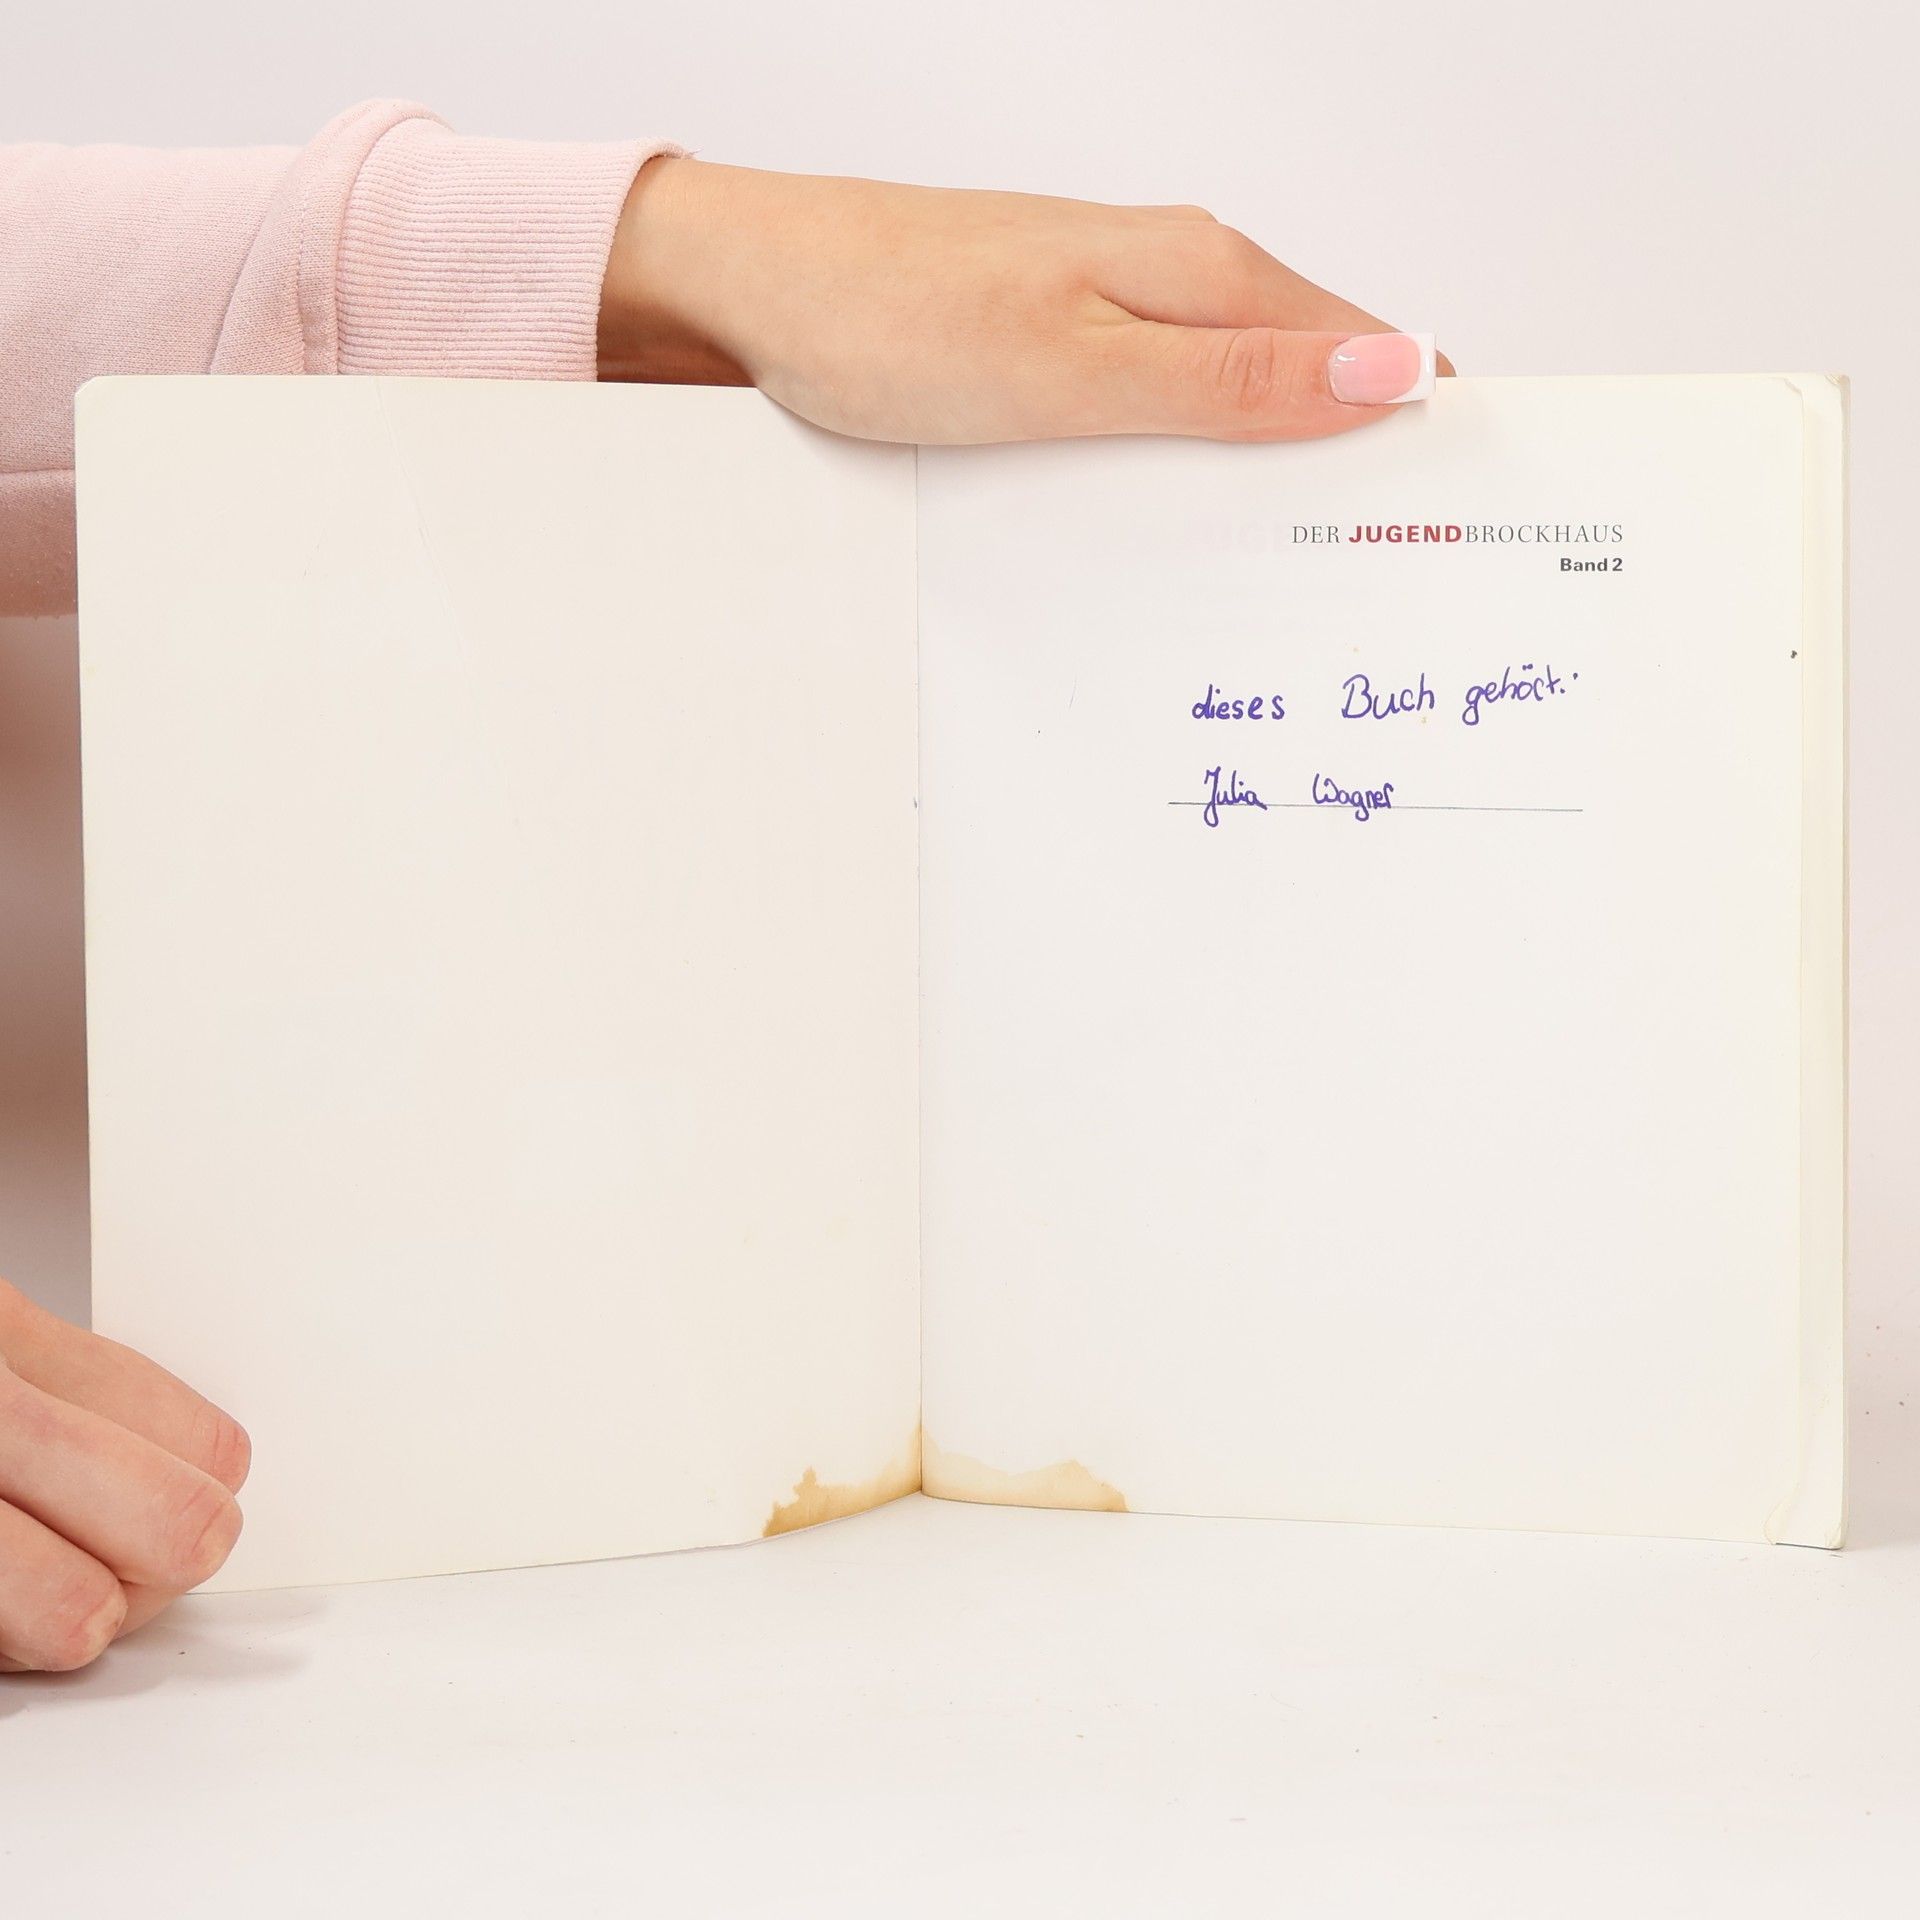 DER JUGENDBROCKHAUS
Band 2
dieses Buch gehört:
Julia Wagner